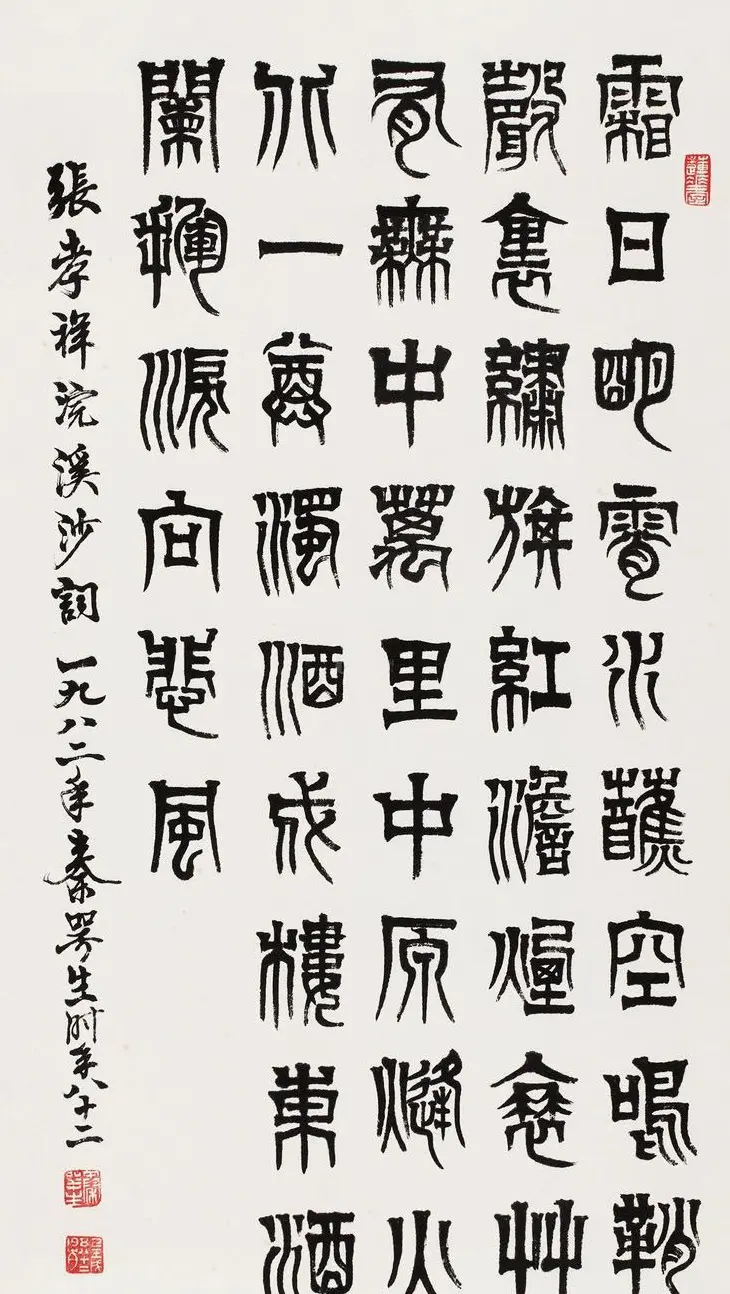 霜日明霄水蘸空鳴鞘
聲裏繡旗紅澹煙衰艸
有無中萬里中原烽火
北一尊濁酒戍樓東酒
闌揮淚向悲風
張孝祥浣溪沙詞一九八二年秦咢生时年八十二